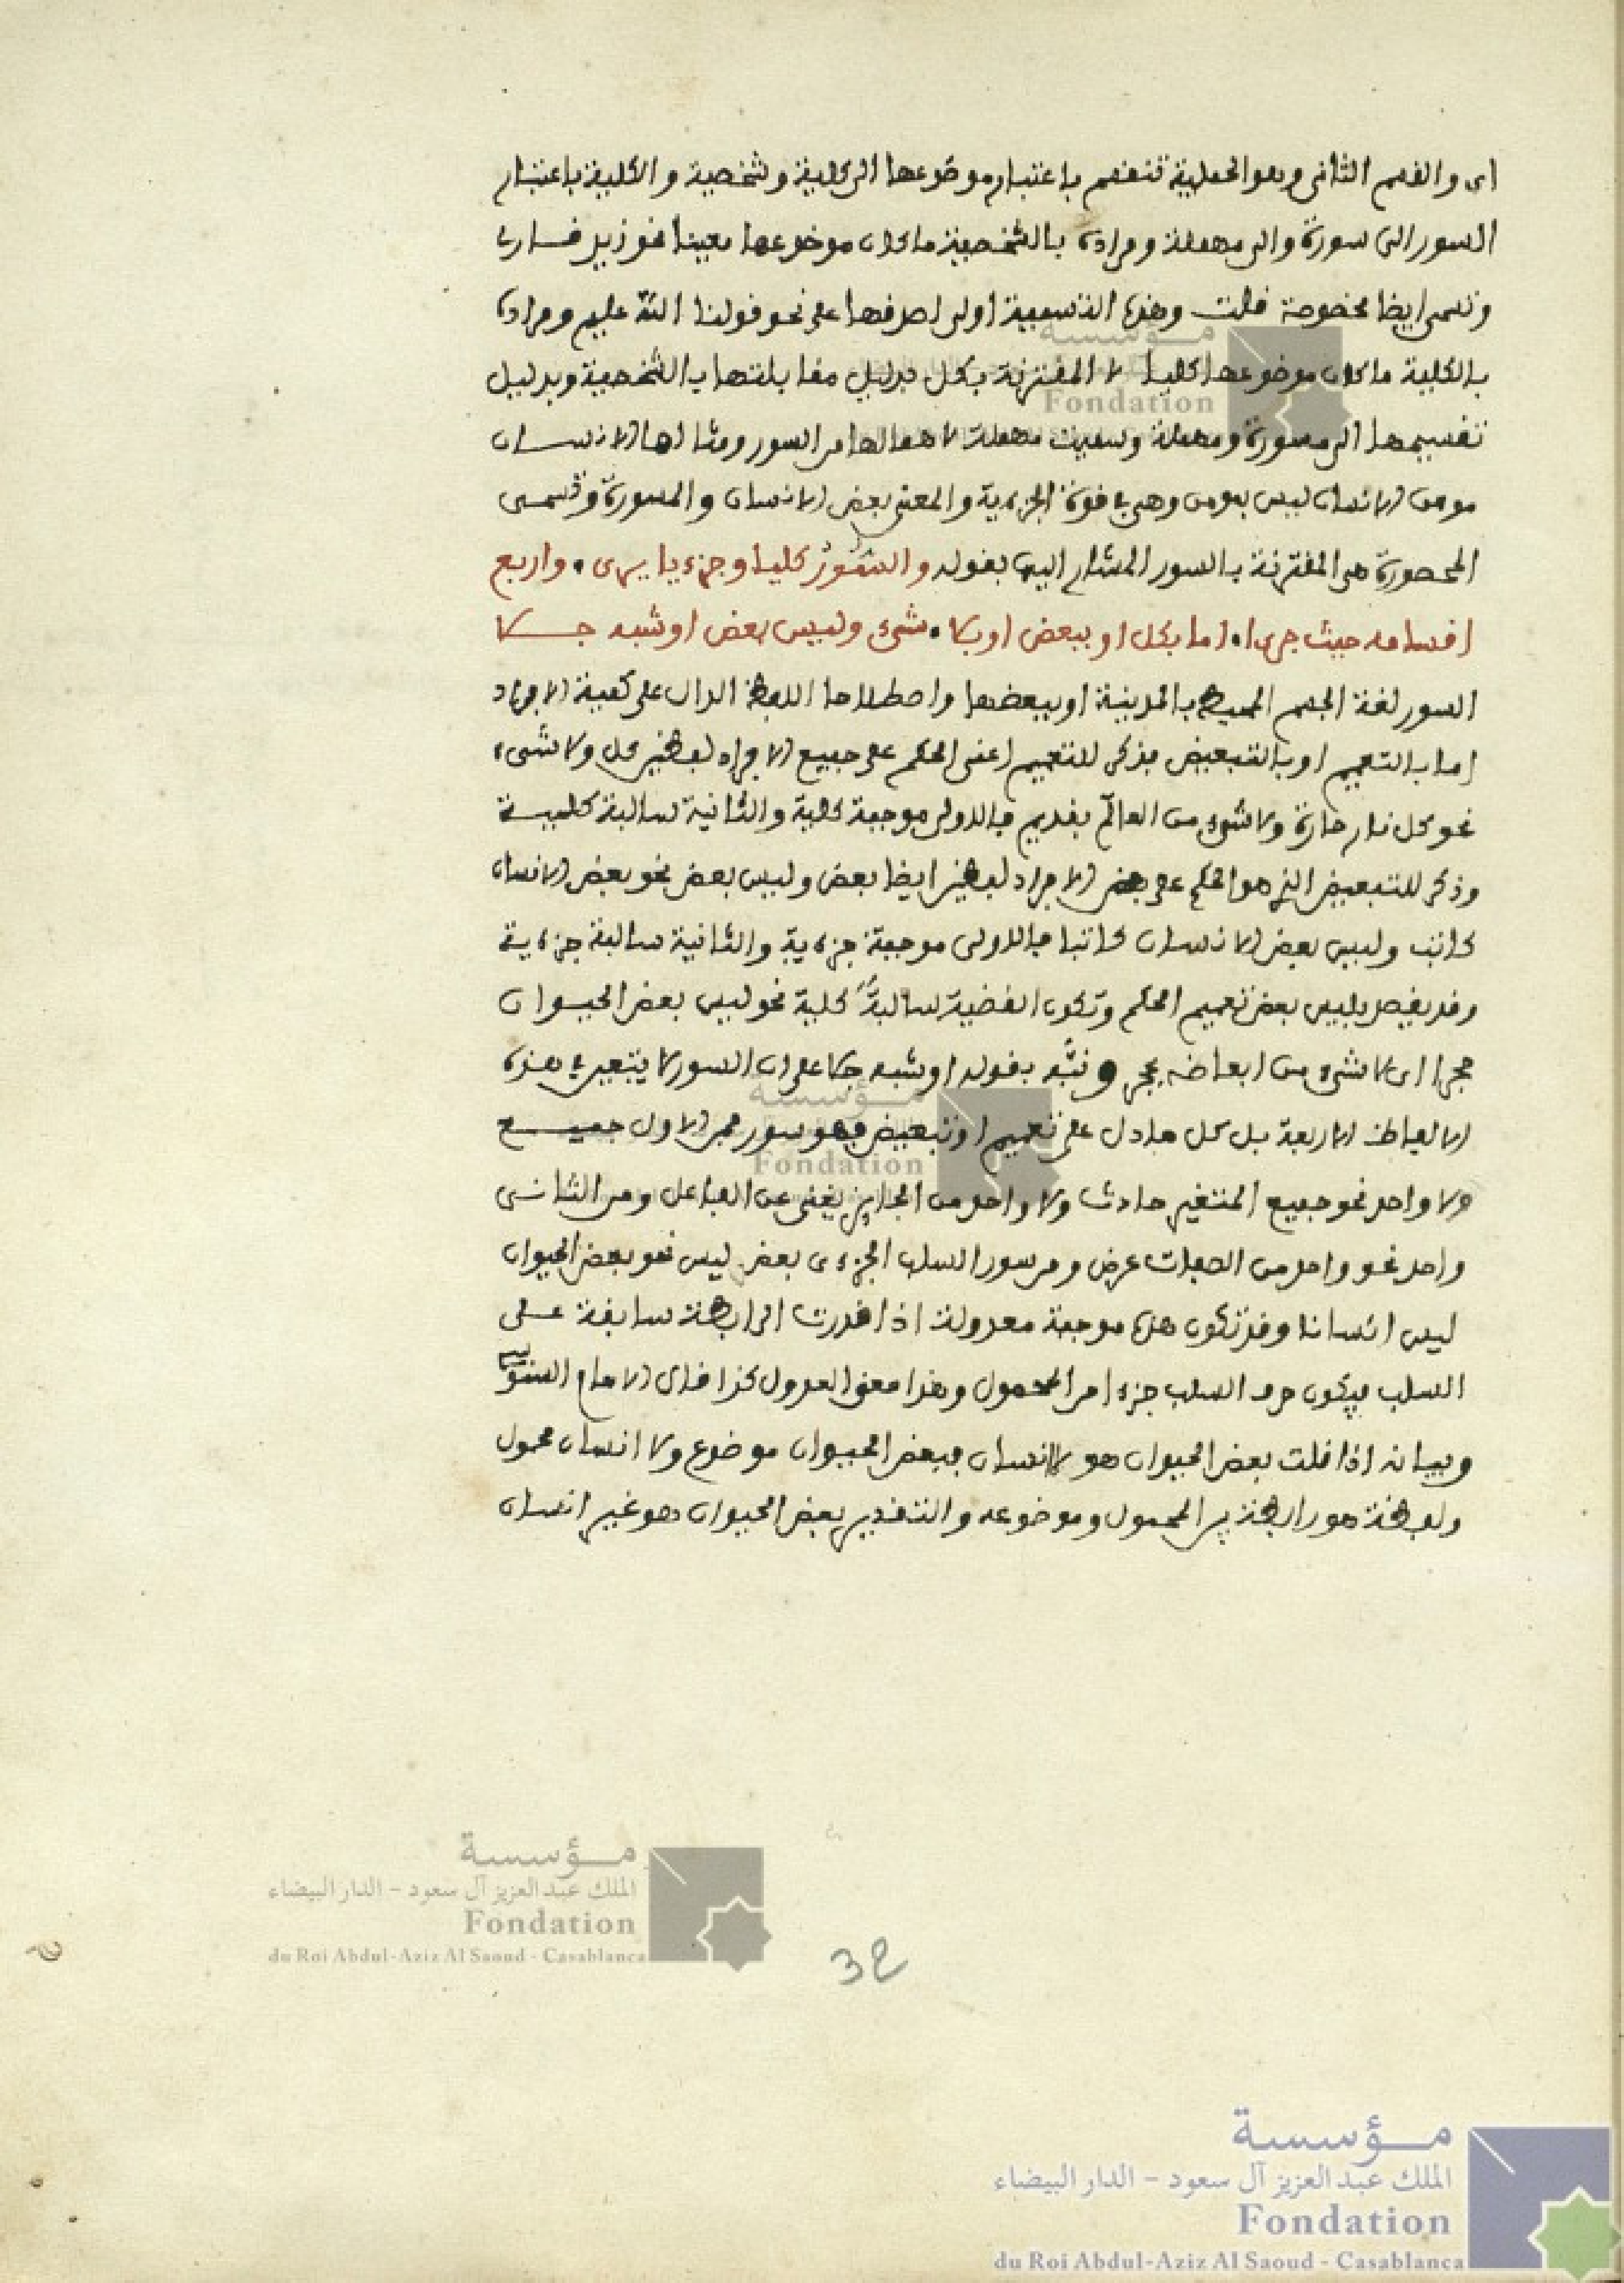 اى والقسم الثانى وهو الحملية تنقسم باعتبار موضوعها الى كلية وشخصية والكلية باعتبار
السور الى مسورة والى مهملة ومراده بالشخصية ما كان موضوعها معينا نحو زيد
وتسمى ايضا مخصوصة قلت وهذه التسمية اولى لصدقها على نحو قولنا الله عليم ومراده
بالكلية ما كان موضوعها كليا لا المقترنة بكل بدليل مقابلتها بالشخصية وبدليل
تقسيمها الى مسورة ومهملة وسميت مهملة لاهمالها من السور ومثالها الانسان
مومن الانسان ليس بمومن وهى فى قوة الجزءية والمعنى بعض الانسان والمسورة وتسمى
المحصورة هى المقترنة بالسور المشار اليه بقوله والسُّوْرُ كليا وجزءيا يرى • واربع
اقسامه حيث جرى • اما بكل او ببعض او بلا • شىء وليس بعض او شبه جلا
السور لغة الجسم المحيط بالمدينة او ببعضها واصطلاحا اللفظ الدال على كمية الافراد
اما بالتعميم او بالتبعيض فذكر للتعميم اعنى الحكم على جميع الافراد لفظين كل ولا شىء
نحو كل نار حارة ولا شىء من العالم بقديم فالاولى موجبة كلية والثانية سالبة كلية
وذكر للتبعيض الذى هو الحكم على بعض الافراد لفظين ايضا بعض وليس بعض نحو بعض الانسان
كاتب وليس بعض الانسان كاتبا فالاولى موجبة جزءية والثانية سالبة جزءية
وقد يقصد بليس بعض تعميم الحكم وتكون القضية سالبة كلية نحو ليس بعض الحيوان
حجرا اى لا شىء من ابعاضه بحجر ونبَّه بقوله او شبه جلا على ان السور لا يتعين فى هذه
الالفاظ الاربعة بل كل ما دل على تعميم او تبعيض فهو سور فمن الاول جميع
ولا واحد نحو جميع المتغير حادث ولا واحد من الجايز يغنى عن الفاعل ومن الثانى
واحد نحو واحد من الصفات عرض ومن سور السلب الجزءى بعض ليس نحو بعض الحيوان
ليس انسانا وقد تكون هذه موجبة معدولة اذا قدرت الرابطة سابقة على
السلب فيكون حرف السلب جزءا من المحمول وهذا معنى العدول كذا قال الامام السنوسى
وبيانه اذا قلت بعض الحيوان هو لا انسان فبعض الحيوان موضوع ولا انسان محمول
ولفظة هو رابطة بين المحمول وموضوعه والتقدير بعض الحيوان هو غير انسان
32
مؤسسة
الملك عبد العزيز آل سعود - الدار البيضاء
Fondation
du Roi Abdul-Aziz Al Saoud - Casablanca
مؤسسة
الملك عبد العزيز آل سعود - الدار البيضاء
Fondation
du Roi Abdul-Aziz Al Saoud - Casablanca